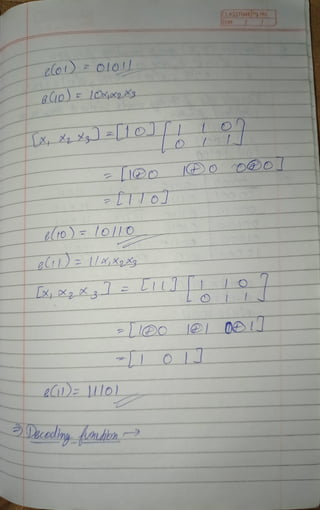 e(01) = 01011
e(10) = 10x₁x₂x₃
[x₁ x₂ x₃] = [1 0] [1 1 0
0 1 1]
= [1⊕0 1⊕0 0⊕0]
= [1 1 0]
e(10) = 10110
e(11) = 11x₁x₂x₃
[x₁ x₂ x₃] = [1 1] [1 1 0
0 1 1]
= [1⊕0 1⊕1 0⊕1]
= [1 0 1]
e(11) = 11101
⇒ Decoding function →